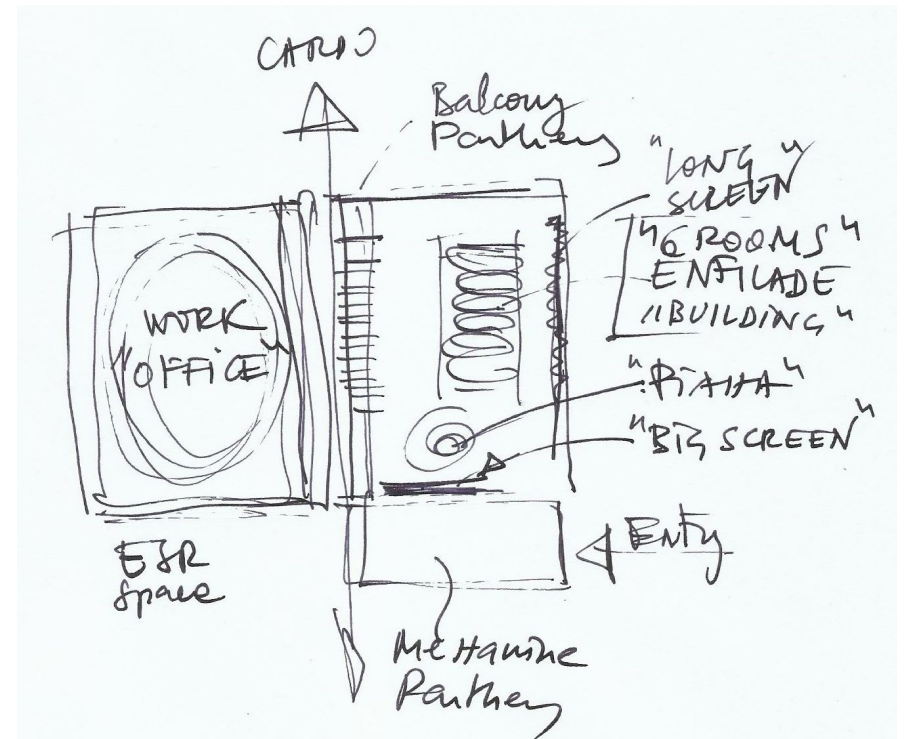 CARDO
Balcony
Panthery
"LONG"
SCREEN
"6 ROOMS"
ENFILADE
"BUILDING"
WORK
"OFFICE"
"PIAZZA"
"BIG SCREEN"
Entry
ESR
Space
Mezzanine
Panthery